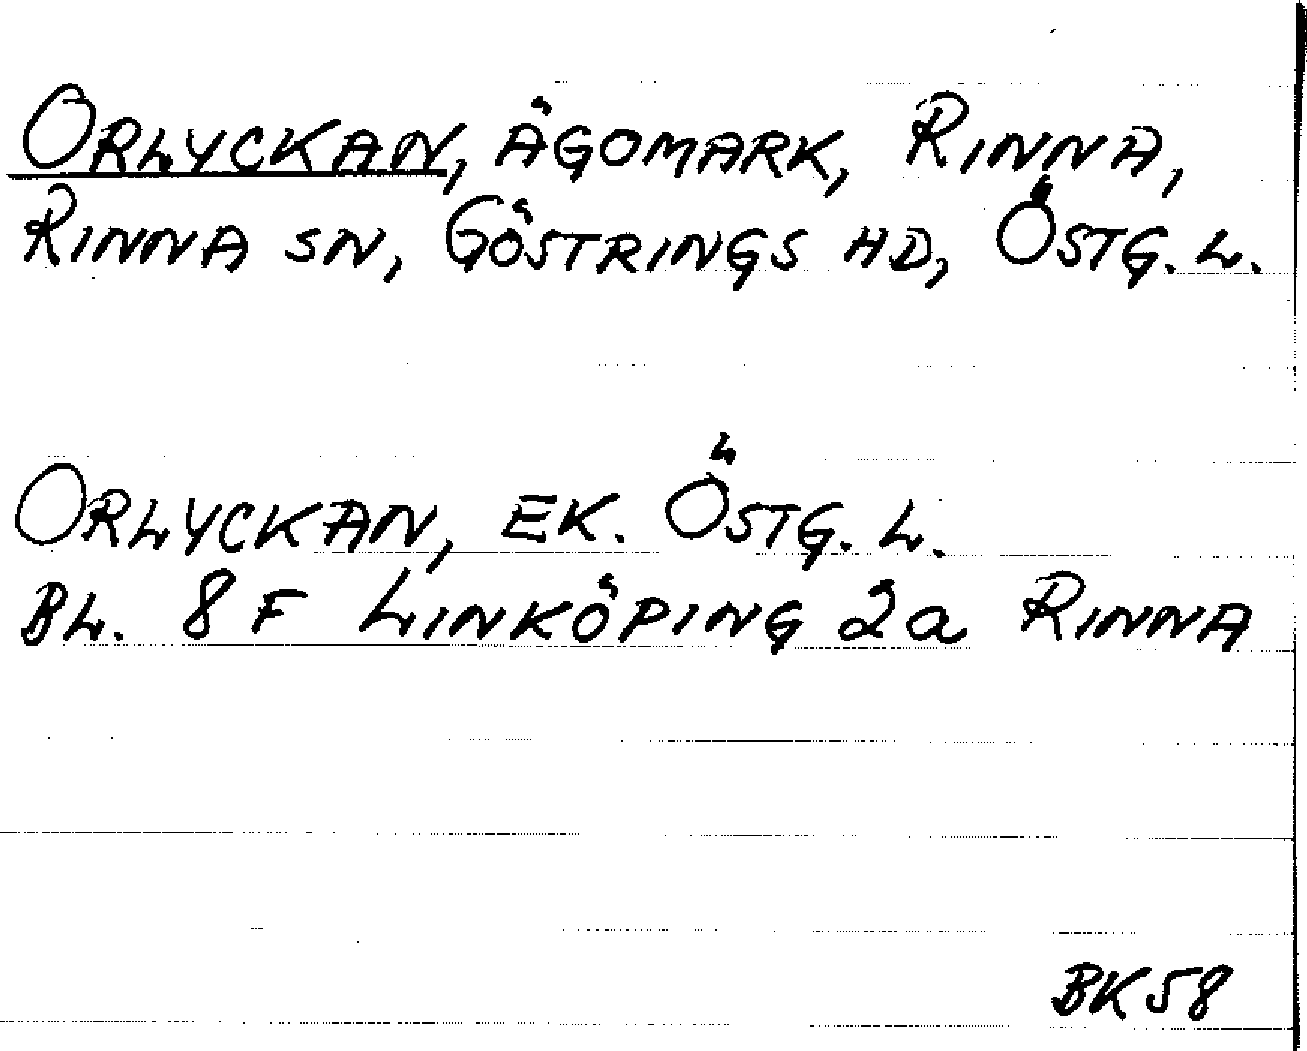 ORLYCKAN, ÄGOMARK, RINNA,
RINNA SN, GÖSTRINGS HD, ÖSTG. L.
ORLYCKAN, EK. ÖSTG. L.
BL. 8 F LINKÖPING 2a RINNA
BK58